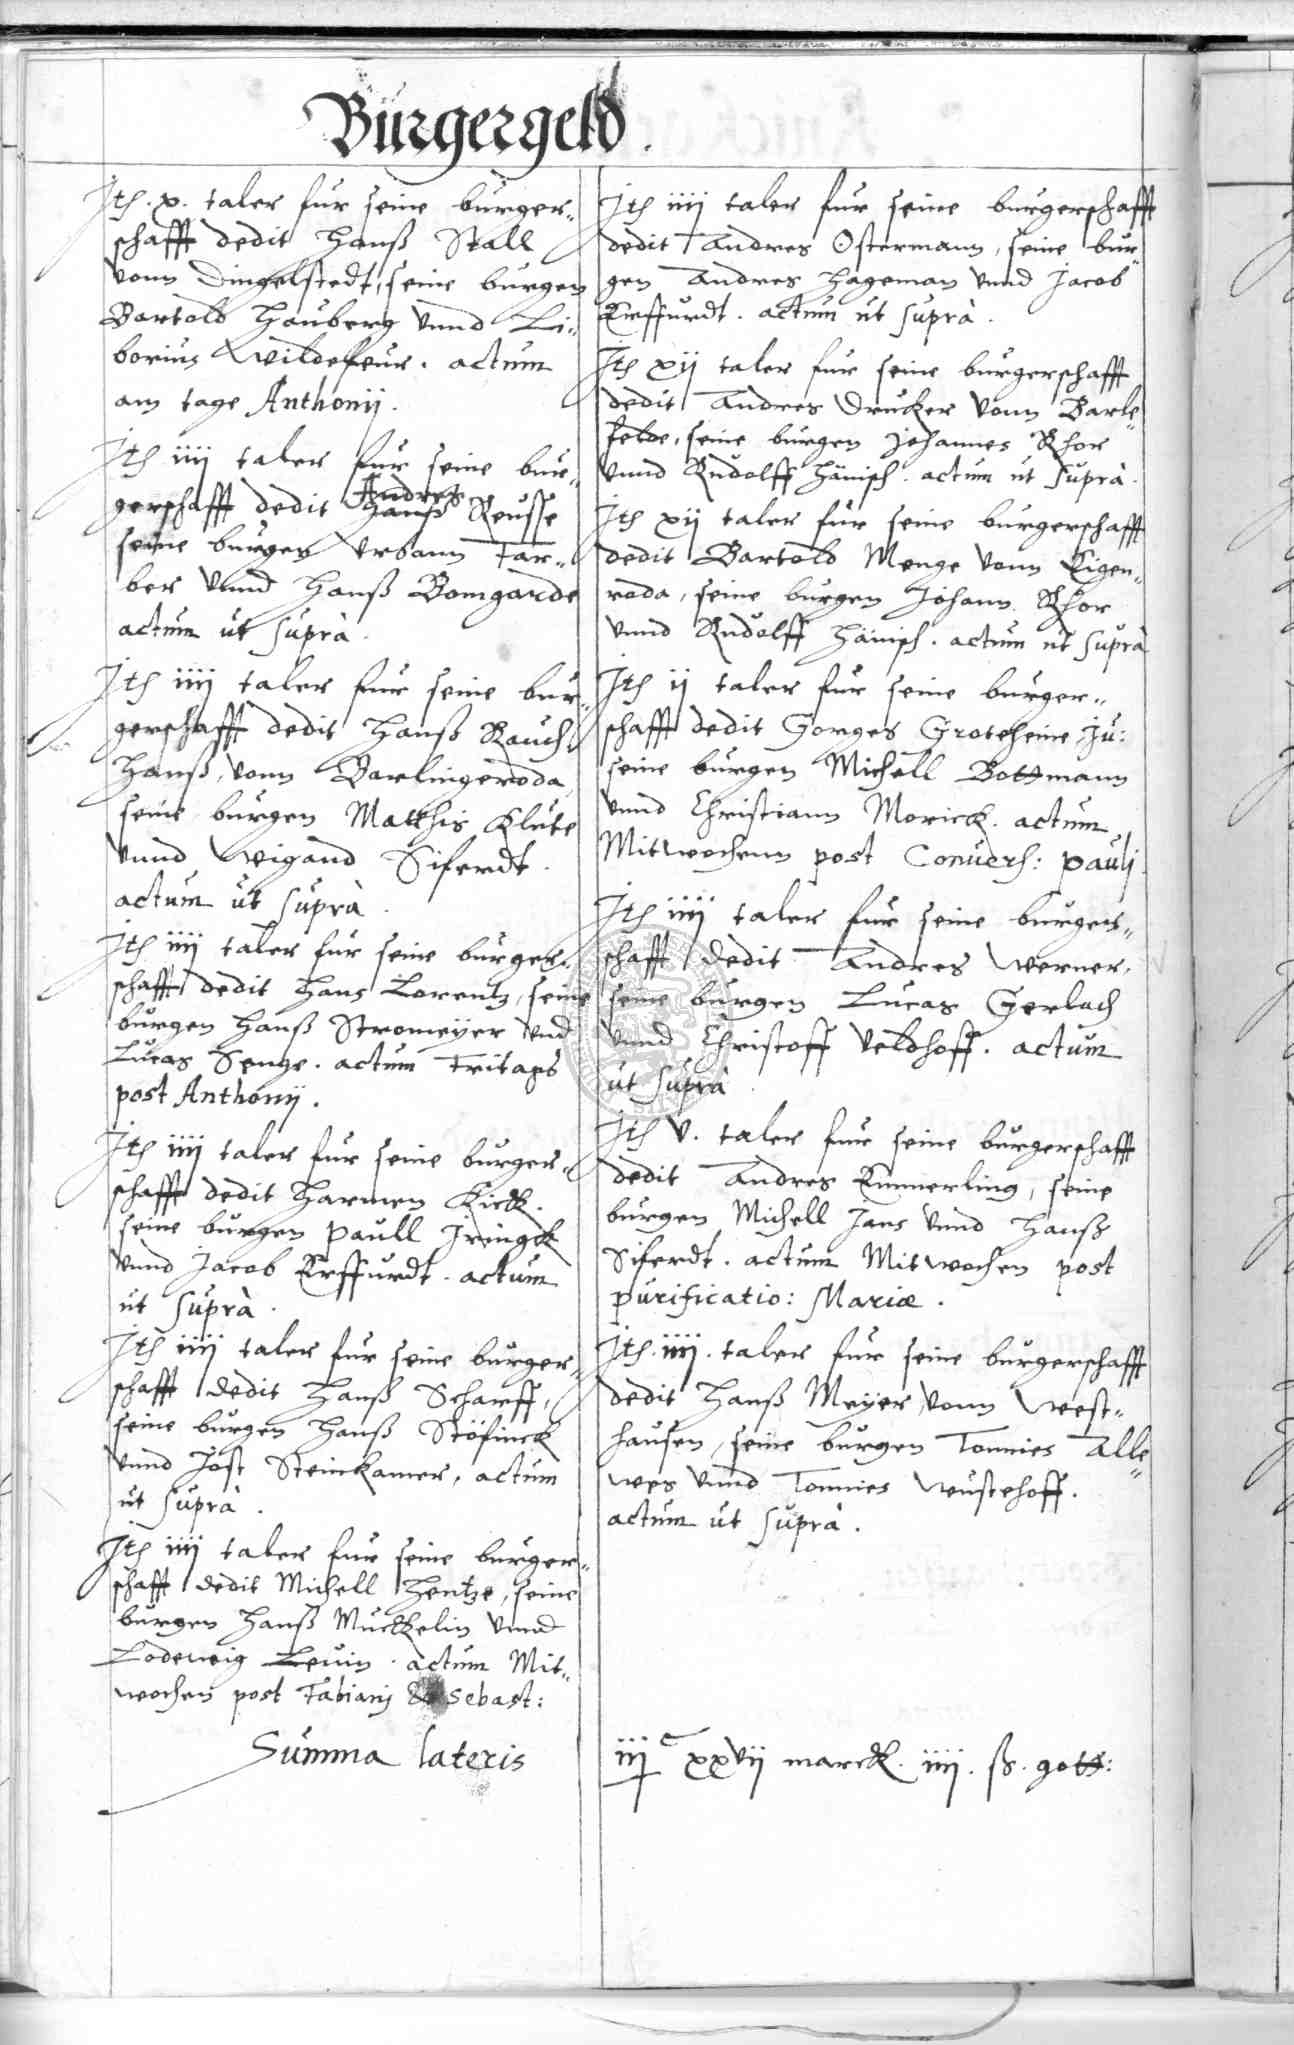 Burgergeld.
Ith. x. taler fur seine burger„
schafft dedit Hanß Stall
vonn Dingelstedt, seine burgen
Bartold Hauberg vnnd Li„
borius Wildefeur. actum
am tage Anthonij.
Ith iiij taler fur seine bur„
gerschafft dedit Andres Hanß Reusse
seine burgen Urbann Far„
ber vnnd Hanß Bomgarde
actum ut suprà.
Ith iiij taler fur seine bur„
gerschafft dedit Hanß Rauch
Hanß, vonn Berlingeroda,
seine burgen Matthis Klute
vnnd Wigand Siferdt.
actum ut suprà.
Ith iiij taler fur seine burger„
schafft dedit Hans Lorentz, seine
burgen Hanß Stromeyer vnd
Lucas Senge. actum Fritags
post Anthonij.
Ith iiij taler fur seine burger„
schafft dedit Harmen Kick.
seine burgen Paull Iringk
vnnd Jacob Erffurdt. actum
ut suprà.
Ith iiij taler fur seine burger„
schafft dedit Hanß Scharff,
seine burgen Hanß Stöfinck
vnnd Jost Steinkamer, actum
ut suprà.
Ith iiij taler fur seine burger„
schafft dedit Michell Hentze, seine
burgen Hanß Muckelin vnnd
Lodewig Levin. actum Mit„
wochen post Fabianj & Sebast:
Summa lateris
Ith iiij taler fur seine burgerschafft
dedit Andres Ostermann, seine bur„
gen Andres Hageman vnnd Jacob
Erffurdt. actum ut suprà.
Ith xij taler fur seine burgerschafft
dedit Andres Drucker vonn Barle„
felde, seine burgen Johannes Rhor
vnnd Rudolff Hänisch. actum ut suprà.
Ith xij taler fur seine burgerschafft
dedit Bartold Menge vonn Eigen„
roda, seine burgen Johann Rhor
vnnd Rudolff Hänisch. actum ut suprà
Ith ij taler fur seine burger„
schafft dedit Gorges Groteheine Ju:
seine burgen Michell Bottmann
vnnd Christiann Morick. actum
Mitwochenn post Conuers: Paulj.
Ith iiij taler fur seine burger„
schafft dedit Andres Werner,
seine burgen Lucas Gerlach
vnnd Christoff Veldhoff. actum
ut suprà.
Ith v. taler fur seine burgerschafft
dedit Andres Emmerling, seine
burgen Michell Jans vnnd Hanß
Siferdt. actum Mitwochen post
purificatio: Mariæ.
Ith. iiij. taler fur seine burgerschafft
dedit Hanß Meyer, vonn West„
hausen, seine burgen Tonnies Alle„
wes vnnd Tonnies Wustehoff.
actum ut suprà.
iij C xxvij marck. iiij. ß. gott: